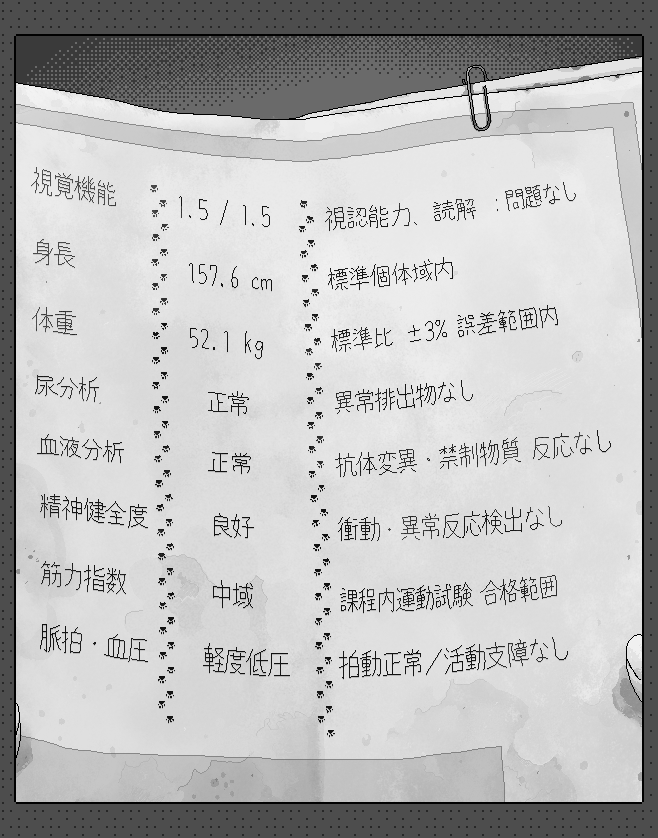 視覚機能 1.5 / 1.5 視認能力、読解 :問題なし
身長 157.6 cm 標準個体域内
体重 52.1 kg 標準比 ±3% 誤差範囲内
尿分析 正常 異常排出物なし
血液分析 正常 抗体変異・禁制物質 反応なし
精神健全度 良好 衝動・異常反応検出なし
筋力指数 中域 課程内運動試験 合格範囲
脈拍・血圧 軽度低圧 拍動正常/活動支障なし